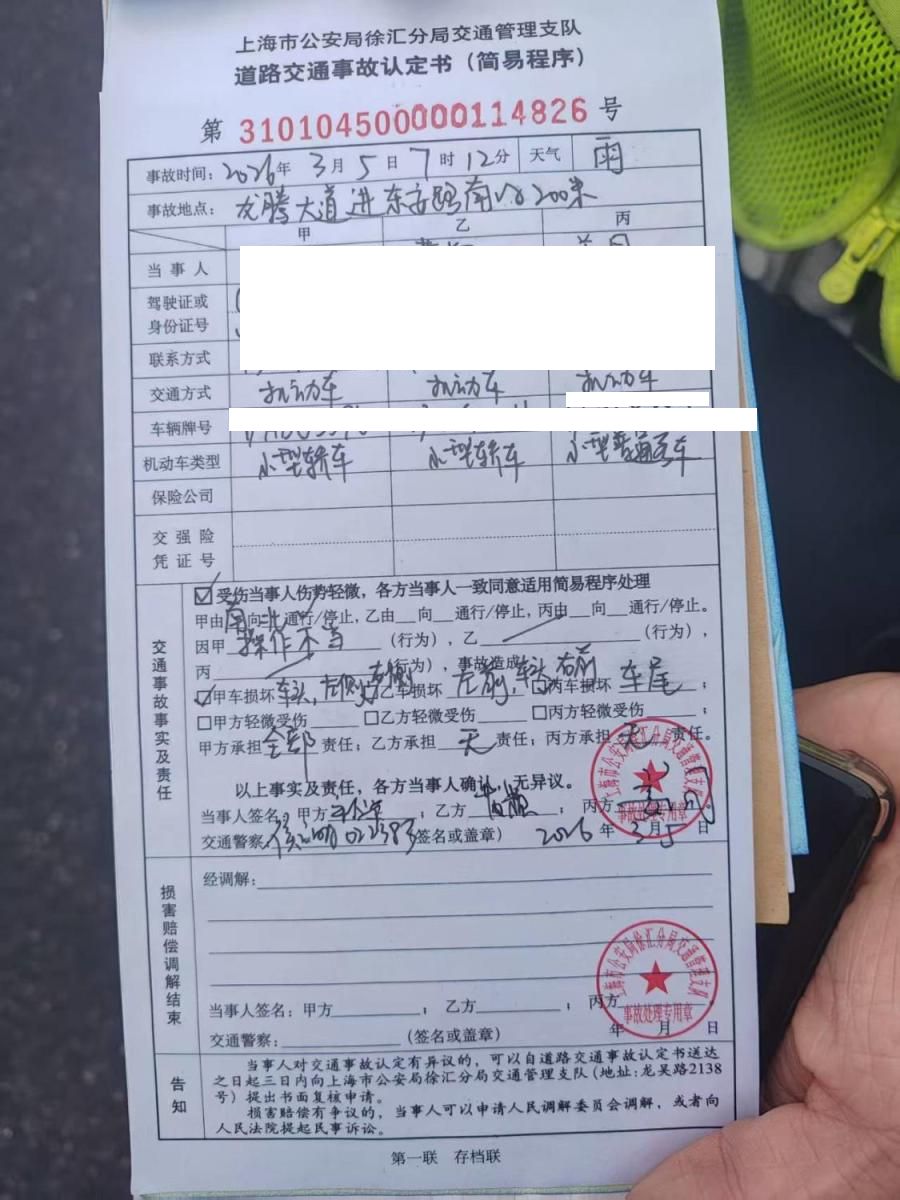 上海市公安局徐汇分局交通管理支队
道路交通事故认定书（简易程序）
第 310104500000114826 号
事故时间：2026年 3月 5日 7时 12分 天气 雨
事故地点：龙腾大道进东安路南约200米
甲 乙 丙
当事人
驾驶证或
身份证号
联系方式
交通方式 机动车 机动车 机动车
车辆牌号
机动车类型 小型轿车 小型轿车 小型普通客车
保险公司
交强险
凭证号
交通事故事实及责任
☑受伤当事人伤势轻微，各方当事人一致同意适用简易程序处理
甲由南向北通行/停止，乙由__向__通行/停止，丙由__向__通行/停止。
因甲 操作不当 （行为），乙 （行为），
丙 （行为），事故造成：
☑甲车损坏 车头，左侧，右侧 ☑乙车损坏 左前，车头右前 ☑丙车损坏 车尾；
□甲方轻微受伤____ □乙方轻微受伤____ □丙方轻微受伤____；
甲方承担 全部 责任；乙方承担 无 责任；丙方承担 无 责任。
以上事实及责任，各方当事人确认，无异议。
当事人签名：甲方 ；乙方 ；丙方 。
交通警察： 022383（签名或盖章） 2026年 3月 5日
上海市公安局徐汇分局交通管理支队
事故处理专用章
损害赔偿调解结束
经调解：
当事人签名：甲方____；乙方____；丙方____
交通警察：____（签名或盖章） 年 月 日
上海市公安局徐汇分局交通管理支队
事故处理专用章
告知
当事人对交通事故认定有异议的，可以自道路交通事故认定书送达
之日起三日内向上海市公安局徐汇分局交通管理支队（地址：龙吴路2138
号）提出书面复核申请。
损害赔偿有争议的，当事人可以申请人民调解委员会调解，或者向
人民法院提起民事诉讼。
第一联 存档联